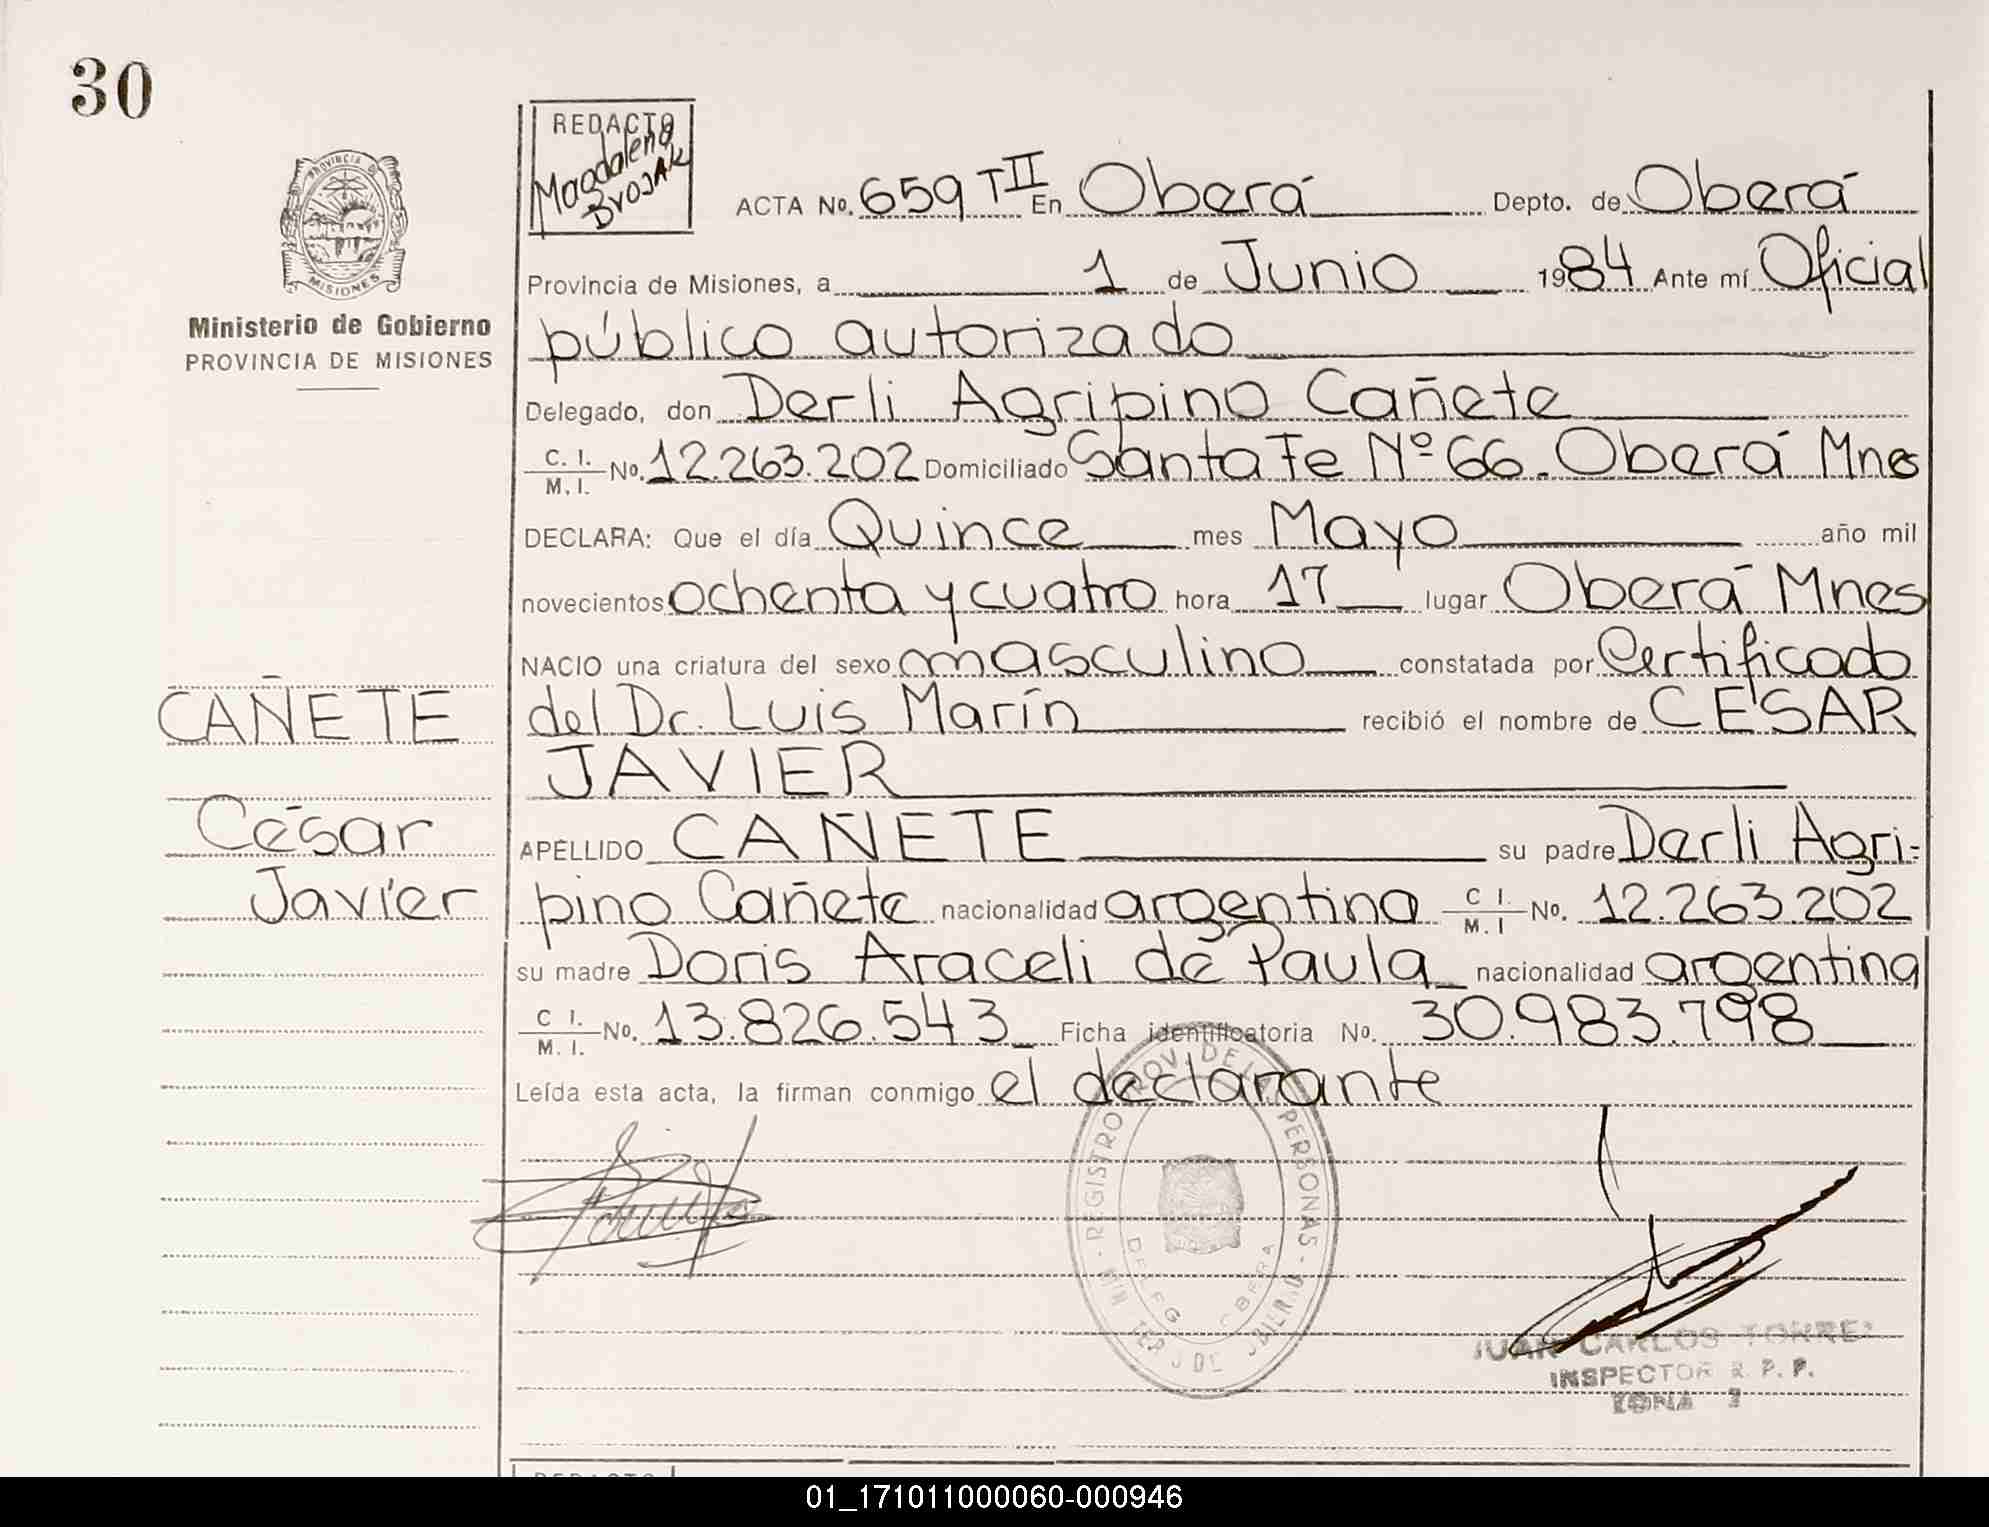 30
PROVINCIA DE
MISIONES
Ministerio de Gobierno
PROVINCIA DE MISIONES
REDACTO
Magdalena
BroJAK
ACTA No. 659 T II En Oberá Depto. de Oberá
Provincia de Misiones, a 1 de Junio 1984 Ante mí Oficial
público autorizado
Delegado, don Derli Agripino Cañete
C. I. / M. I. No. 12.263.202 Domiciliado Santa Fe Nº 66. Oberá Mnes
DECLARA: Que el día Quince mes Mayo año mil
novecientos ochenta y cuatro hora 17 lugar Oberá Mnes
NACIO una criatura del sexo masculino constatada por Certificado
del Dr. Luis Marín recibió el nombre de CESAR
JAVIER
APELLIDO CAÑETE su padre Derli Agri-
pino Cañete nacionalidad argentina C I. / M. I No. 12.263.202
su madre Doris Araceli de Paula nacionalidad argentina
C I. / M. I. No. 13.826.543 Ficha identificatoria No. 30.983.798
Leída esta acta, la firman conmigo el declarante
CAÑETE
César
Javier
REGISTRO PROV. DE LAS PERSONAS
JUAN CARLOS TORRES
INSPECTOR R. P. P.
ZONA
REDACTO
01_171011000060-000946